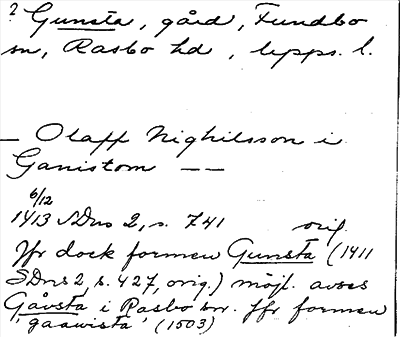 ? Gunsta, gård, Fundbo
sn, Rasbo hd, Upps. l.
— Olaff Nighilsson i
Ganistom — —
6/12
1413 SDns 2, s. 741 orig.
Jfr dock formen Gunsta (1411
SDns 2, s. 427, orig.) möjl. avses
Gåvsta i Rasbo sn. Jfr formen
"gaawista" (1503)